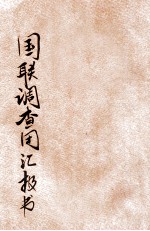 国联调查团汇报书